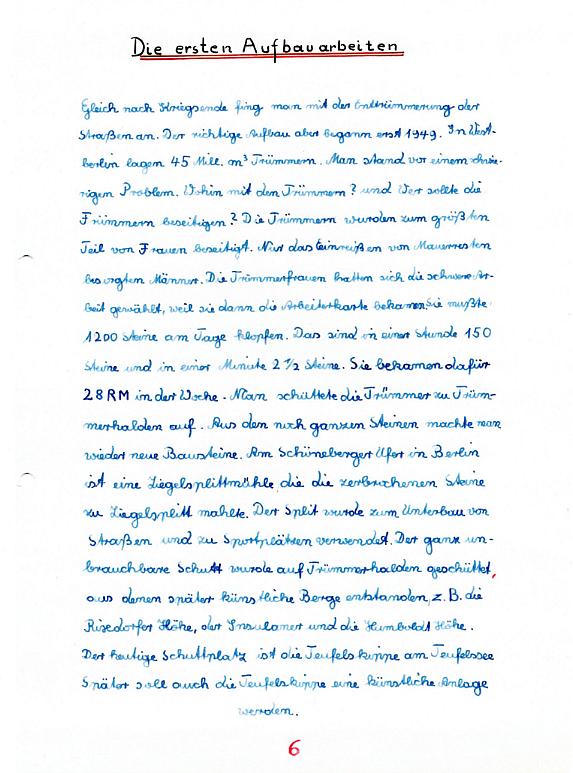 Die ersten Aufbauarbeiten
Gleich nach Kriegsende fing man mit der Enttrümmerung der
Straßen an. Der richtige Aufbau aber begann erst 1949. In West-
berlin lagen 45 Mill. m³ Trümmern. Man stand vor einem schwie-
rigen Problem. Wohin mit den Trümmern? und Wer sollte die
Trümmern beseitigen? Die Trümmern wurden zum größten
Teil von Frauen beseitigt. Nur das Einreißen von Mauerresten
besorgten Männer. Die Trümmerfrauen hatten sich die schwere Ar-
beit gewählt, weil sie dann die Arbeiterkarte bekamen. Sie mußte
1200 Steine am Tage klopfen. Das sind in einer Stunde 150
Steine und in einer Minute 2 1/2 Steine. Sie bekamen dafür
28 RM in der Woche. Man schüttete die Trümmer zu Trüm-
merhalden auf. Aus den noch ganzen Steinen machte man
wieder neue Bausteine. Am Schöneberger Ufer in Berlin
ist eine Ziegelsplittmühle, die die zerbrochenen Steine
zu Ziegelsplitt mahlte. Der Split wurde zum Unterbau von
Straßen und zu Sportplätzen verwendet. Der ganz un-
brauchbare Schutt wurde auf Trümmerhalden geschüttet,
aus denen später künstliche Berge entstanden, z.B. die
Rixdorfer Höhe, der Insulaner und die Humboldt Höhe.
Der heutige Schuttplatz ist die Teufelskippe am Teufelssee
Später soll auch die Teufelskippe eine künstliche Anlage
werden.
6